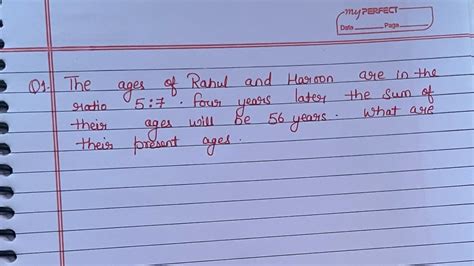 myPERFECT
Date Page
Q1. The ages of Rahul and Haroon are in the
ratio 5:7. four years later the sum of
their ages will be 56 years. What are
their present ages.